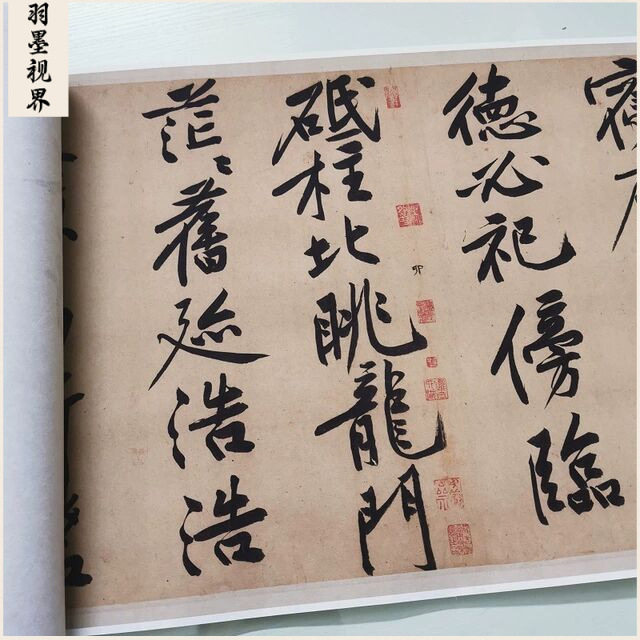 羽墨视界
德必祀傍臨
砥柱北眺龍門
茫〻舊迹浩浩